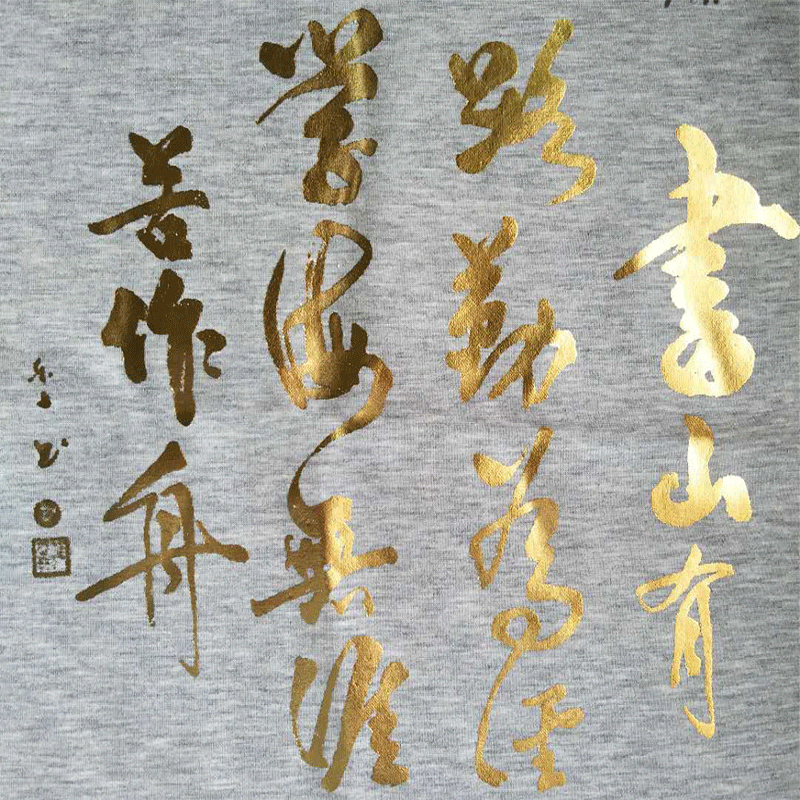 書山有
路勤為徑
學海無涯
苦作舟